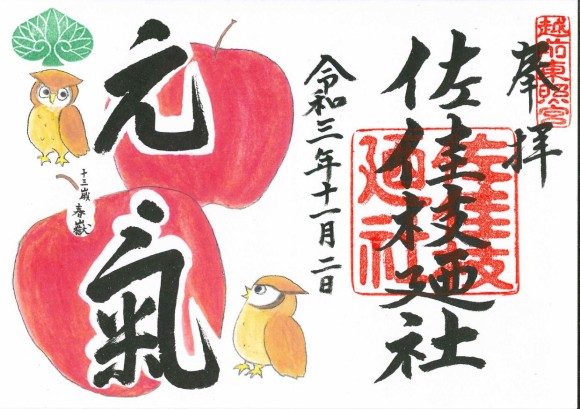 越前東照宮
奉拝
佐佳枝廼社
佐佳枝
廼社
令和三年十一月二日
元氣
十三歳 春嶽